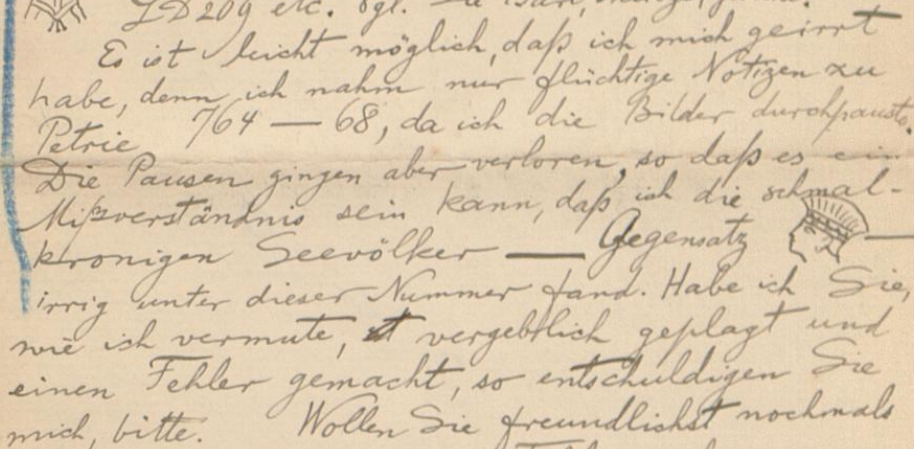 LD209 etc. Vgl.
Es ist leicht möglich, daß ich mich geirrt
habe, denn ich nahm nur flüchtige Notizen zu
Petrie 764 — 68, da ich die Bilder durchpauste.
Die Pausen gingen aber verloren, so daß es ein
Mißverständnis sein kann, daß ich die schmal-
kronigen Seevölker — Gegensatz —
irrig unter dieser Nummer fand. Habe ich Sie,
wie ich vermute, vergeblich geplagt und
einen Fehler gemacht, so entschuldigen Sie
mich, bitte. Wollen Sie freundlichst nochmals